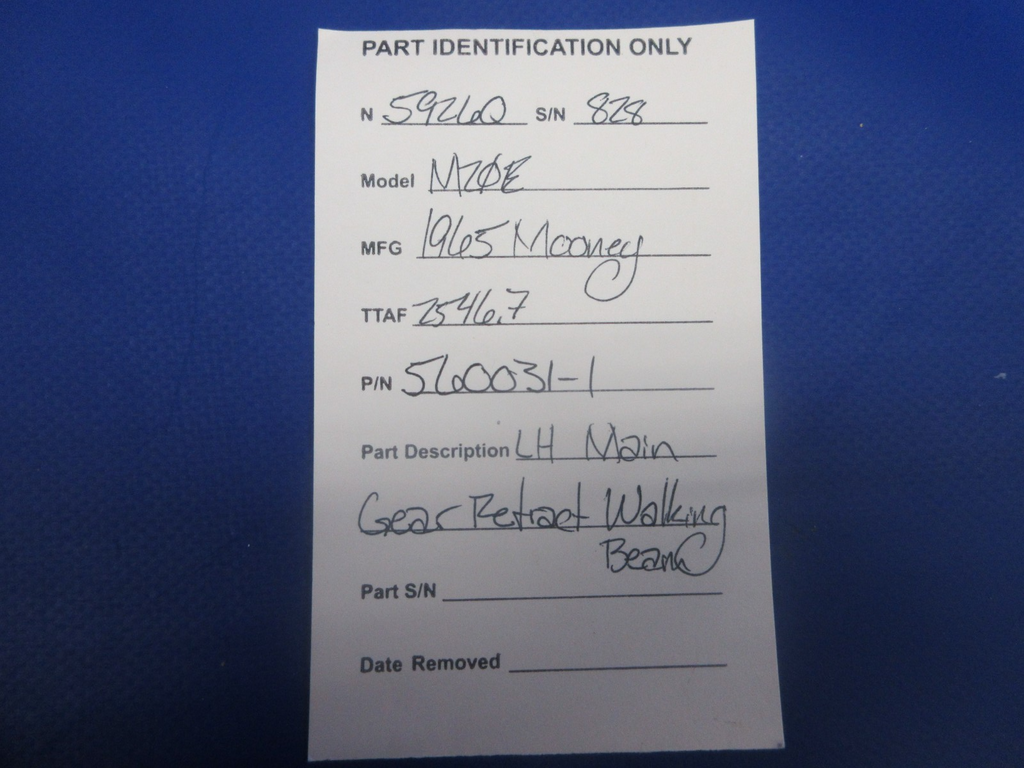 PART IDENTIFICATION ONLY
N 5926Q S/N 828
Model M20E
MFG 1965 Mooney
TTAF 2546.7
P/N 560031-1
Part Description LH Main
Gear Retract Walking
Beam
Part S/N
Date Removed